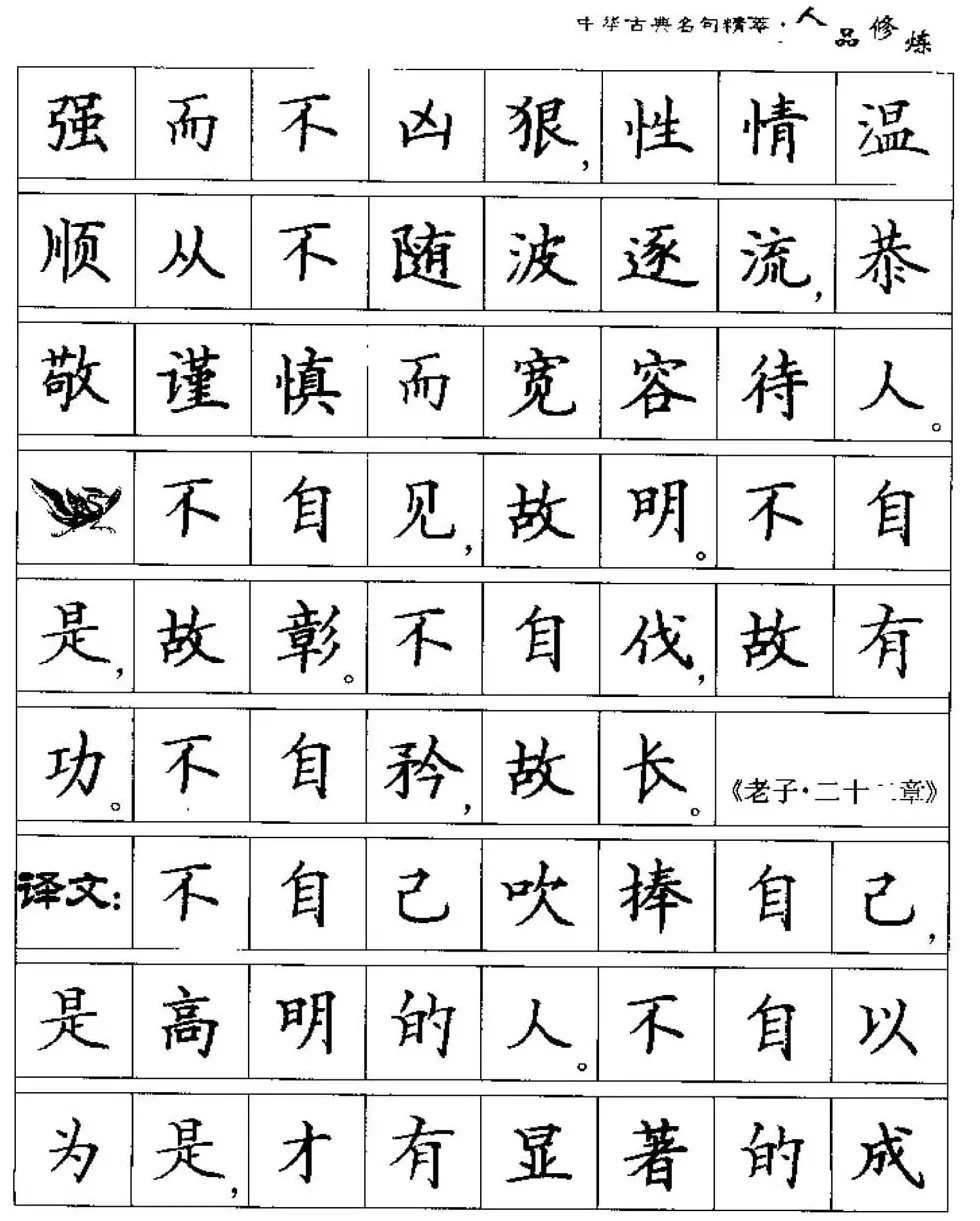 中华古典名句精萃·人品修炼
强而不凶狠,性情温
顺从不随波逐流,恭
敬谨慎而宽容待人。
不自见,故明。不自
是,故彰。不自伐,故有
功。不自矜,故长。《老子·二十二章》
译文:不自己吹捧自己,
是高明的人。不自以
为是,才有显著的成